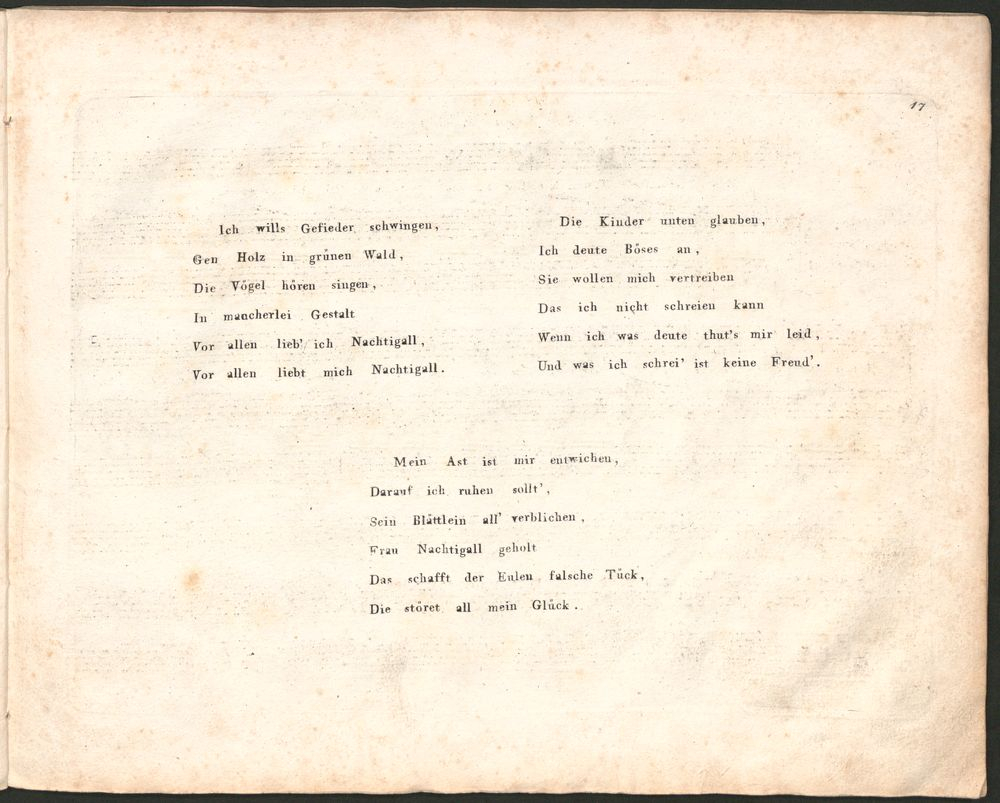 17
Ich wills Gefieder schwingen,
Gen Holz in grůnen Wald,
Die Vőgel hőren singen,
In mancherlei Gestalt
Vor allen lieb' ich Nachtigall,
Vor allen liebt mich Nachtigall.
Die Kinder unten glauben,
Ich deute Bőses an,
Sie wollen mich vertreiben
Das ich nicht schreien kann
Wenn ich was deute thut's mir leid,
Und was ich schrei' ist keine Freud'.
Mein Ast ist mir entwichen,
Darauf ich ruhen sollt',
Sein Blåttlein all' verblichen,
Frau Nachtigall geholt
Das schafft der Eulen falsche Tůck,
Die stőret all mein Glůck.